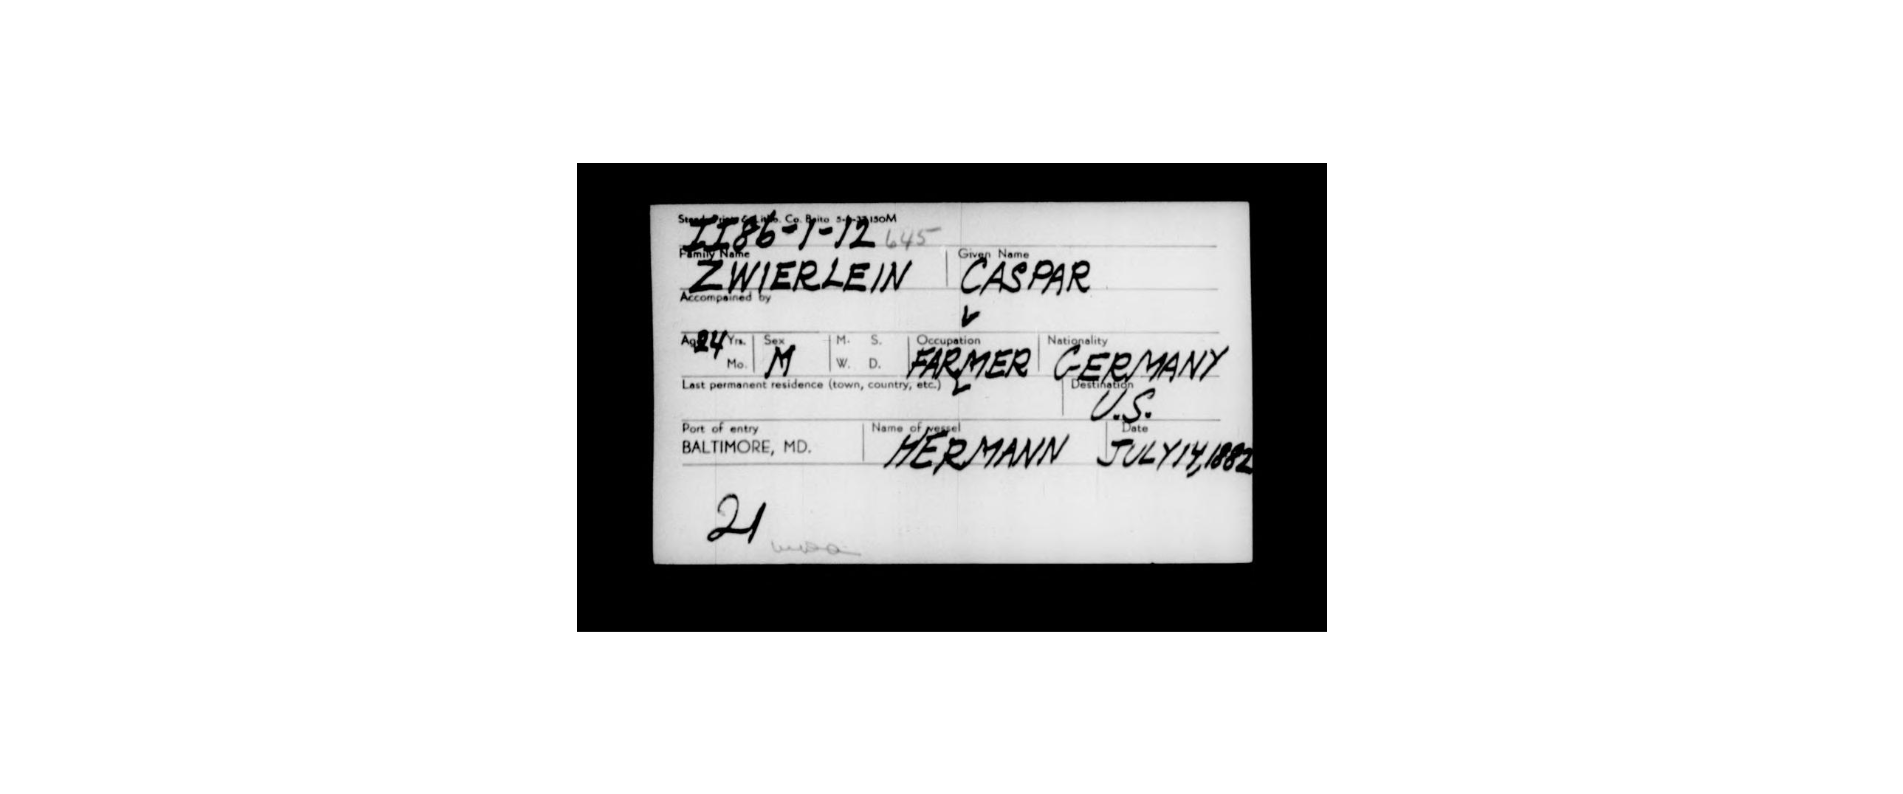 Co. Balto 5-6-37 150M
II86-1-12 645
Family Name Given Name
ZWIERLEIN CASPAR
Accompained by
Age 24 Yrs. Sex M. S. Occupation Nationality
Mo. M W. D. FARMER GERMANY
Last permanent residence (town, country, etc.) Destination
U.S.
Port of entry Name of vessel Date
BALTIMORE, MD. HERMANN JULY 14, 1882
21